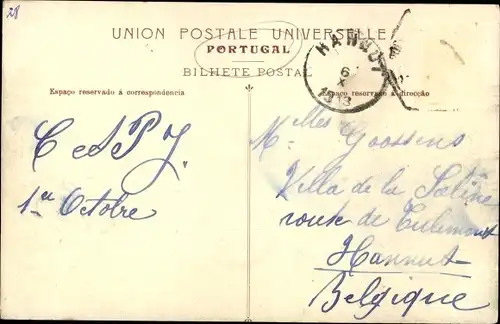 28
UNION POSTALE UNIVERSELLE
PORTUGAL
BILHETE POSTAL
HANNUT
6
X
1913
Espaço reservado á correspondencia
Espaço reservado á direcção
C & A P J.
1er Octobre
Melles Goossens
Villa de la Saline
route de Tirlemont
Hannut
Belgique